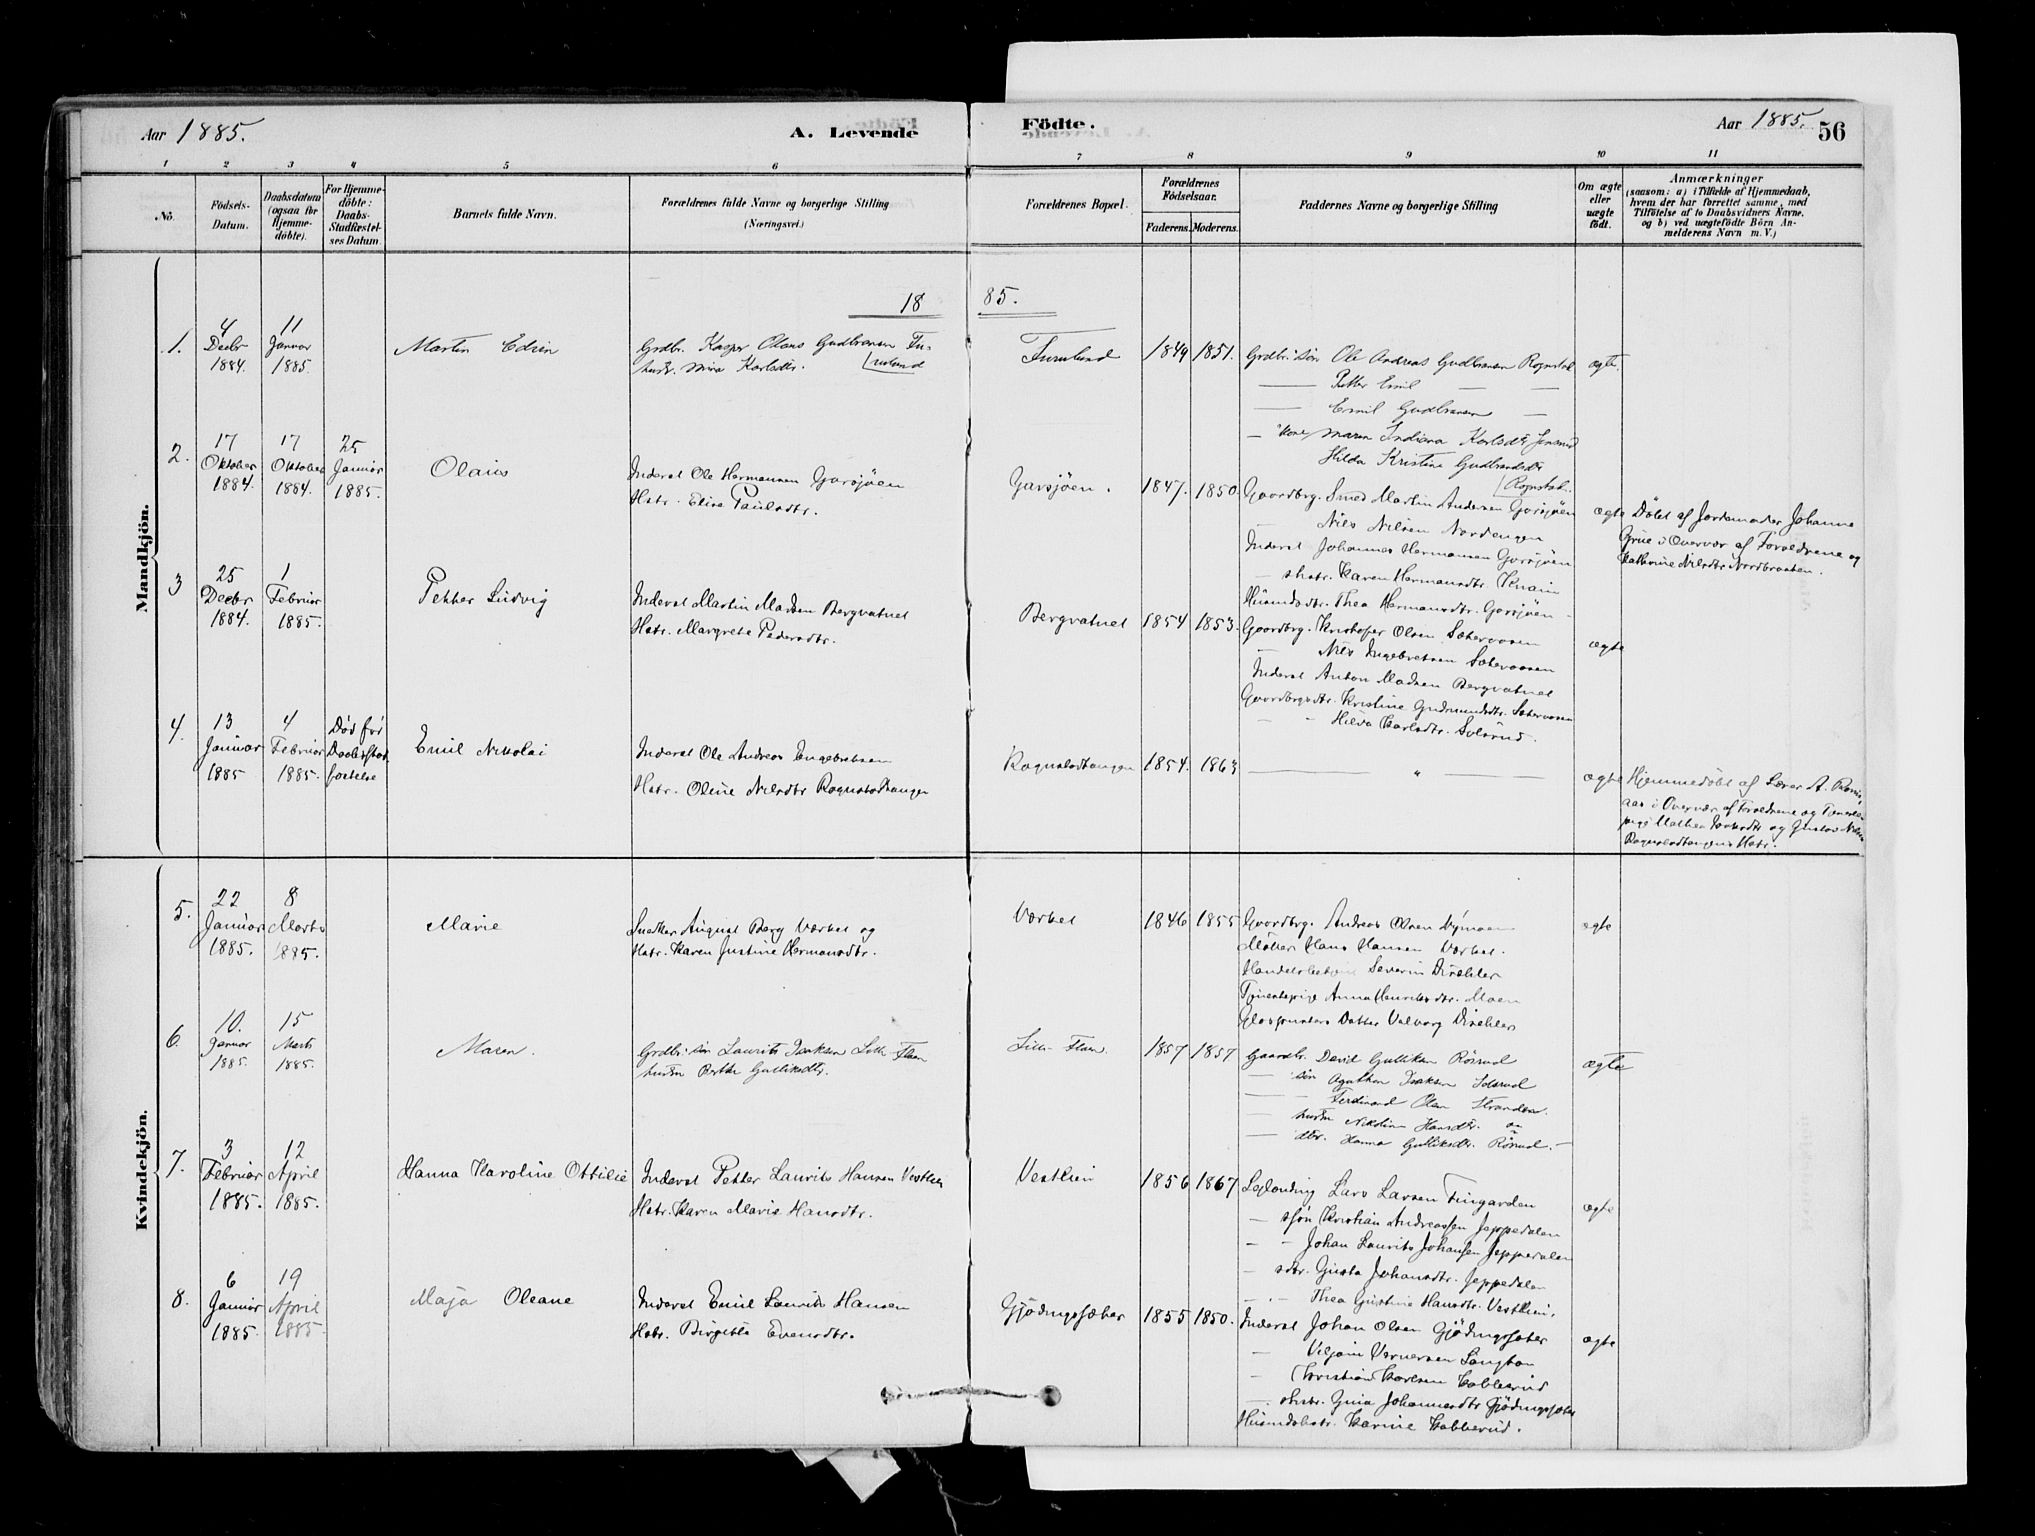 Aar 1885.
A. Levende
Födte.
Aar 1885.
56
1 2 3 4 5 6 7 8 9 10 11
No.
Födsels-
Datum.
Daabsdatum
(ogsaa for
Hjemme-
döbte).
For Hjemme-
döbte:
Daabs-
Stadfæstel-
ses Datum
Barnets fulde Navn.
Forældrenes fulde Navne og borgerlige Stilling
(Næringsvei.)
Forældrenes Bopæl.
Forældrenes
Födselsaar.
Faderens. Moderens.
Faddernes Navne og borgerlige Stilling
Om ægte
eller
uægte
födt.
Anmærkninger
(saasom: a) i Tilfælde af Hjemmedaab,
hvem der har forrettet samme, med
Tilföielse af to Daabsvidners Navne,
og b) ved uægtefödte Börn An-
melderens Navn m. V.)
Mandkjön.
18 85.
1.
4
Decbr
1884.
11
Januar
1885.
Martin Edvin
Grdbr. Kasper Olaus Gudbransen
Karlsdtr.
1849 1851.
Grdbr. søn Ole Andreas Gudbransen
Petter Emil
Emil Gudbransen
Kone Maren Indiana Karlsdtr
Hilda Kristine Gudbrandsdtr
ægte
2.
17
Oktober
1884.
17
Oktober
1884.
25
Januar
1885.
Olaus
Inderst Ole Hermansen Garsjøen
Hstr. Elise Paulsdtr.
Garsjøen.
1847. 1850.
Gaardbrg. Smed Martin Andersen Garsjøen
Nils Nilsen Nordengen
Inderst Johannes Hermansen Garsjøen
Karen Hermansdtr.
Husmdsdtr. Thea Hermansdtr. Garsjøen
ægte
Døbt af Jordemoder Johanne
Grue i Overvær af Forældrene og
Kathrine Nilsdtr Nordbraaten.
3
25
Decbr
1884.
1
Februar
1885.
Petter Ludvig
Inderst Martin Madsen Bergvatnet
Hstr. Margrete Pedersdtr.
Bergvatnet
1854 1853.
Gaardbrg. Kristofer Olsen
Nils Ingebretsen
Inderst Anton Madsen Bergvatnet
Gaardbrgsdtr. Kristine Gudmundsdtr.
Hilda Karlsdtr.
ægte
4.
13
Januar
1885
4
Februar
1885.
Død før
Daabsstad-
fæstelse
Emil Nikolai
Inderst Ole Andreas Engebretsen
Hstr. Oline Nilsdtr Rognstadtangen
Rognstadtangen
1854. 1863
"
ægte
Hjemmedøbt af Lærer A.
i Overvær af Forældrene og Tjeneste-
pige Mathea og Gustav
Rognstadtangens Hstr.
Kvindekjön.
5.
22
Januar
1885.
8
Marts
1885.
Marie
Snedker August Berg Værket og
Hstr. Karen Justine Hermansdtr.
Værket
1846 1855
Gaardbrg. Andreas Olsen
Møller Hans Hansen Værket.
Severin
Tjenestepige Anna Henriksdtr. Moen
Datter Valborg
ægte
6.
10.
Januar
1885.
15
Marts
1885.
Maren.
Grdbr. søn Laurits Isaksen
hustru Berthe Gulliksdtr.
1857 1857
Gaardbr. David Gulliksen Rösrud
søn Agathon Isaksen
Ferdinand Olsen
hustru Nikoline Hansdtr.
dtr. Hanna Gulliksdtr. Rösrud.
ægte
7.
3
Februar
1885.
12
April
1885.
Hanna Karoline Ottilie
Inderst Petter Laurits Hansen Vestlien
Hstr. Karen Marie Hansdtr.
Vestlien
1856 1867
Lars Larsen Fingarden
søn Kristian Andreassen Jeppedalen
Johan Laurits Johansen Jeppedalen
sdtr. Gusta Johansdtr. Jeppedalen
Thea Gustine Hansdtr. Vestlien.
ægte
8.
6
Januar
1885.
19
April
1885.
Maja Oleane
Inderst Emil Laurits Hansen
Hstr. Birgitte Evensdtr.
Gjødingssæter
1855 1850.
Inderst Johan Olsen Gjødingssæter
Viljam Vernersen
Kristian Karlsen
Gina Johannesdtr Gjødingssæter
Karine
ægte